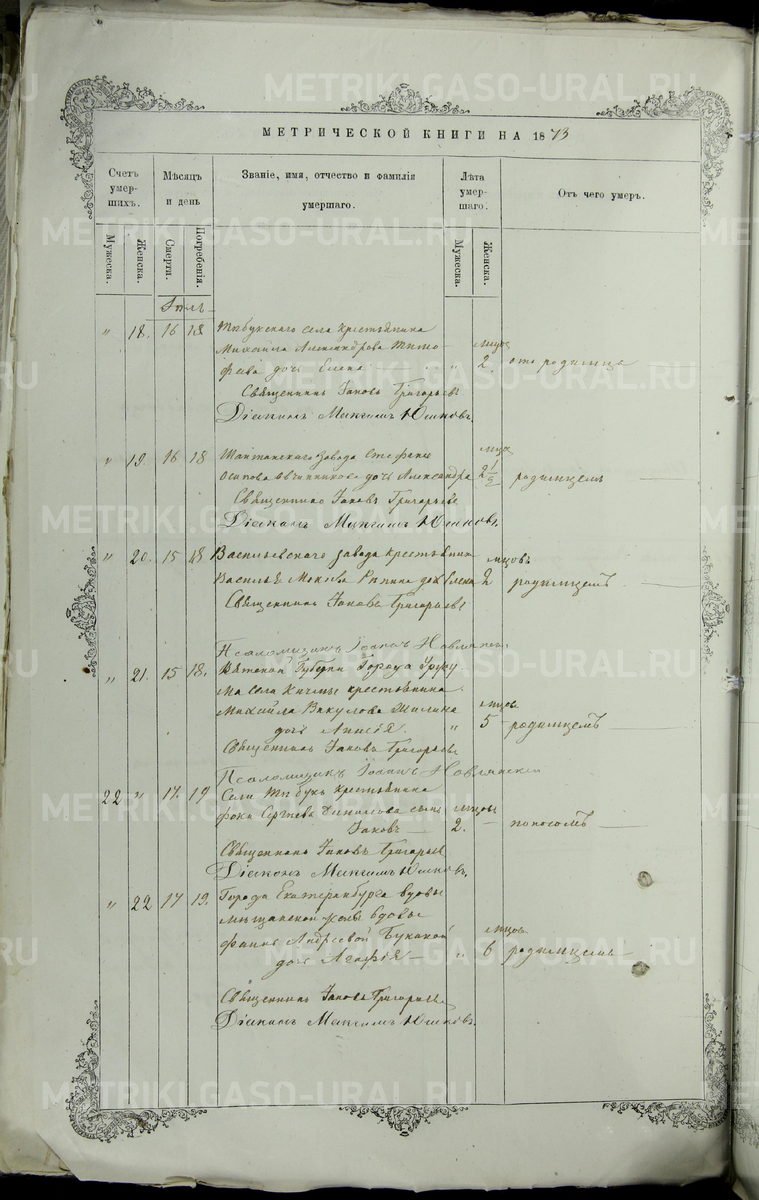 МЕТРИЧЕСКОЙ КНИГИ НА 1873
Счетъ умер-шихъ.
Мѣсяцъ и день
Званіе, имя, отчество и фамилія умершаго.
Лѣта умер-шаго.
Отъ чего умеръ.
Мужеска.
Женска.
Смерти.
Погребенія.
Мужеска.
Женска.
Іюль
" 18. 16 18 села крестьянина
Михаила Александрова Тимо-
феева дочь Елена " 2 отъ родимца
Священникъ Іаковъ Григорьевъ
Діаконъ Максимъ Юшковъ.
" 19. 16 18 Шайтанскаго завода Стефана
Осипова Овчинникова дочь Александра 2 1/2 родимцемъ
Священникъ Іаковъ Григорьевъ
Діаконъ Максимъ Юшковъ.
" 20. 15 18 Васильевскаго завода крестьянина
Василья дочь Елена 2 родимцемъ
Священникъ Іаковъ Григорьевъ
Псаломщикъ Іоаннъ
" 21. 15 18. Вятской Губерніи Города Уржу
ма села Кичмы крестьянина
Михаила Вакулова дочь Анисія. " 5 родимцемъ
Священникъ Іаковъ Григорьевъ
Псаломщикъ Іоаннъ
22 " 17. 19 Села крестьянина
Фоки Сергѣева сынъ
Іаковъ 2. поносомъ
Священникъ Іаковъ Григорьевъ
Діаконъ Максимъ Юшковъ.
" 22 17 19. Города Екатеринбурга вдовы
мѣщанской жены вдовы
Андреевой
дочь Агафія " 6 родимцемъ
Священникъ Іаковъ Григорьевъ
Діаконъ Максимъ Юшковъ.
METRIKI.GASO-URAL.RU